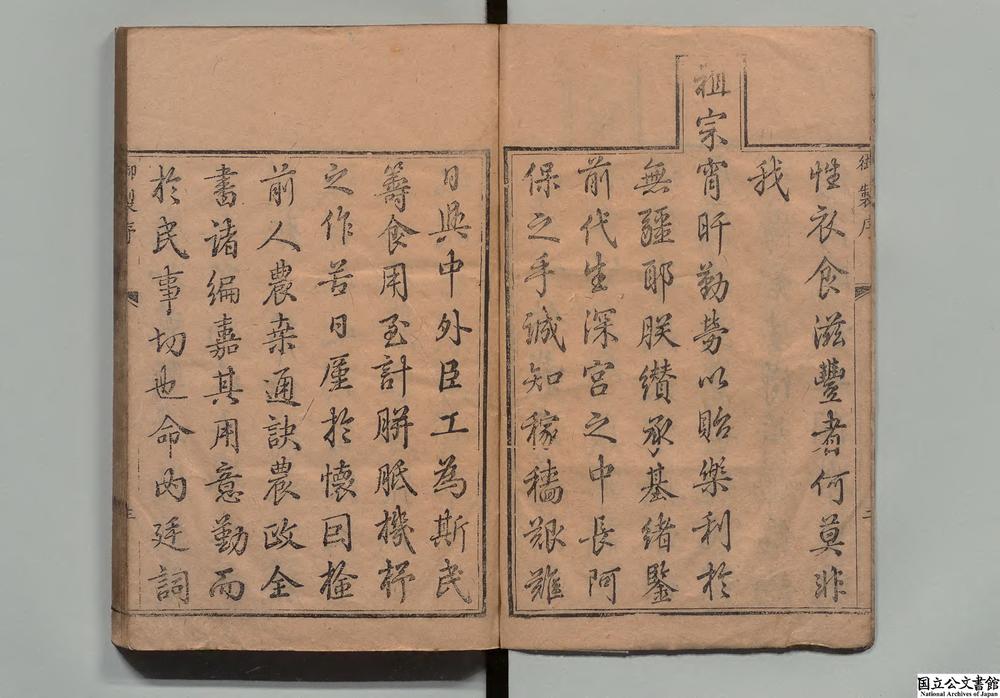 御製序
二
性衣食滋豐者何莫非
我
祖宗宵旰勤勞以貽樂利於
無疆耶朕纘承基緒鑒
前代生深宮之中長阿
保之手誠知稼穡艱難
日與中外臣工為斯民
籌食用至計胼胝機杼
之作苦日厪於懷因檢
前人農桒通訣農政全
書諸編嘉其用意勤而
於民事切也命内廷詞
御製序
三
国立公文書館
National Archives of Japan